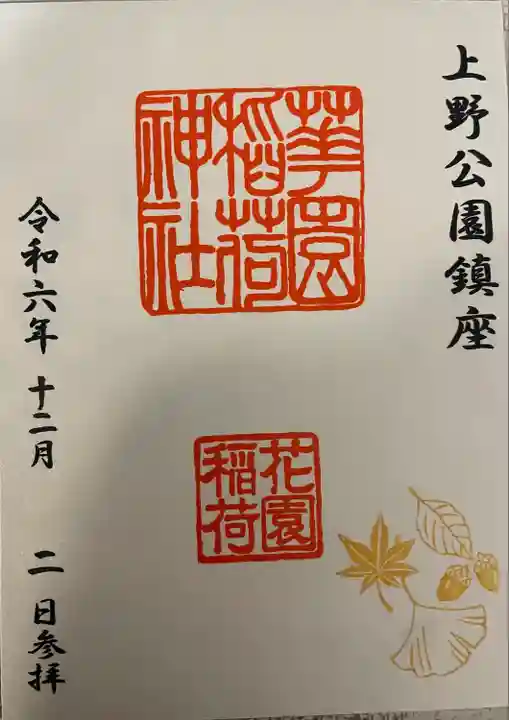 上野公園鎮座
華園
稲荷
神社
花園
稲荷
令和六年 十二月 二 日参拝